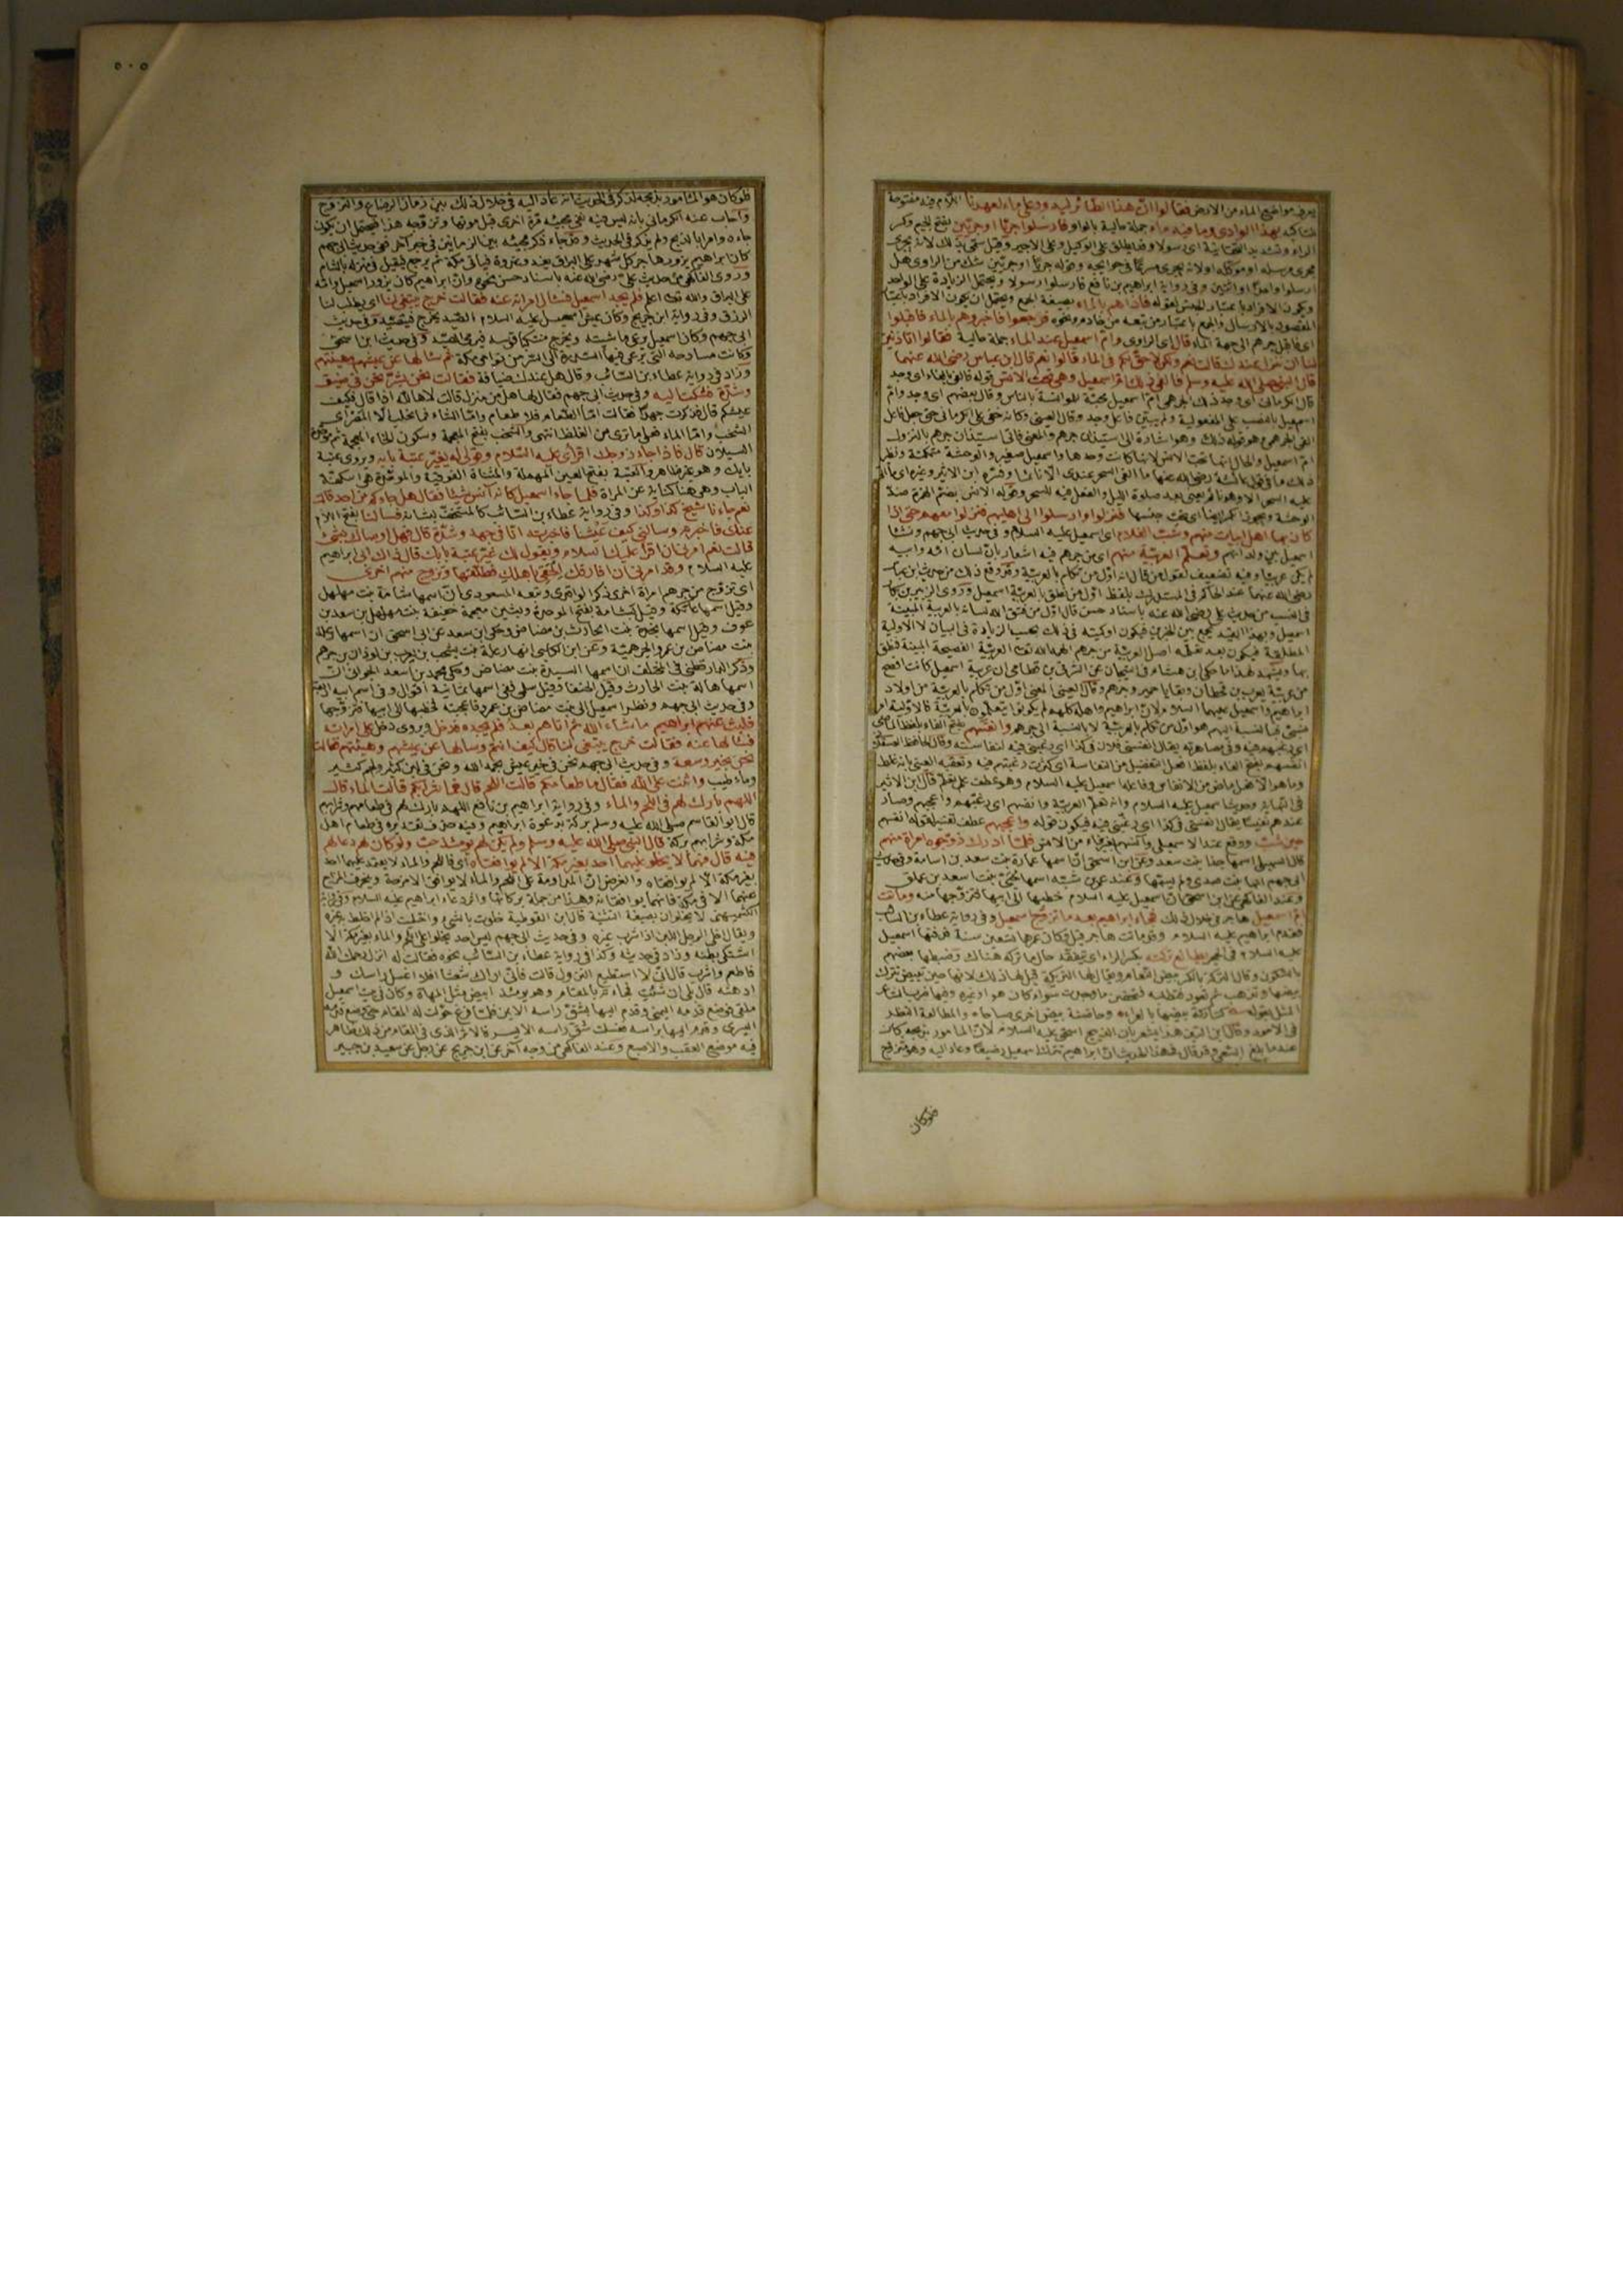 يعرف مواضع الماء من الارض فقالوا ان هذا الطائر ليدور على ماء لعهدنا اللام فيه مفتوحة
للتأكيد بهذا الوادى وما فيه ماء جملة حالية بالواو فارسلوا جريا او جريين بفتح الجيم وكسر
الراء وتشديد التحتانية اى رسولا وقد يطلق على الوكيل وعلى الاجير وقيل سمى بذلك لانه يجرى
مجرى مرسله او موكله اولانه يجرى مسرعا فى حوائجه وقوله جريا او جريين شك من الراوى هل
ارسلوا واحدا او اثنين وفى رواية ابراهيم بن نافع فارسلوا رسولا ويحتمل الزيادة على الواحد
ويكون الافراد باعتبار الجنس لقوله فاذا هم بالماء بصيغة الجمع ويحتمل ان يكون الافراد باعتبار
المقصود بالارسال والجمع باعتبار من يتبعه من خادم ونحوه فرجعوا فاخبروهم بالماء فاقبلوا
اى فاقبل جرهم الى جهة الماء قال اى الراوى وام اسمعيل عند الماء جملة حالية فقالوا اتأذنين
لنا ان ننزل عندك قالت نعم ولكن لا حق لكم فى الماء قالوا نعم قال ابن عباس رضى الله عنهما
قال النبى صلى الله عليه وسلم فالفى ذلك ام اسمعيل وهى تحب الانس قوله فالفى بالفاء اى وجد
قال الكرمانى اى وجد ذلك الجرهمى ام اسمعيل محبة للمؤانسة بالناس وقال بعضهم اى وجد وام
اسمعيل بالنصب على المفعولية ولم يبين فاعل وجد وقال العينى وكانه خفى على الكرمانى حتى جعل فاعل
الفى الجرهمى هو قوله ذلك وهو اشارة الى استيذان جرهم والمعنى فالفى استيذان جرهم بالنزول
ام اسمعيل والحال انها تحب الانس لانها كانت وحدها واسمعيل صغير والوحشة متمكنة ونظير
ذلك ما فى قول عائشة رضى الله عنها ما الفى السحر عندى الا نائما وفسره ابن الاثير وغيره اى ما اتى
عليه السحر الا وهو نائم يعنى بعد صلوة الليل والفعل فيه للسحر وقوله الانس بضم الهمزة ضد
الوحشة ويجوز الكسر ايضا اى تحب جنسها فنزلوا وارسلوا الى اهليهم فنزلوا معهم حتى اذا
كان بها اهل ابيات منهم وشب الغلام اى اسمعيل عليه السلام وفى حديث ابى جهم ونشأ
اسمعيل بين ولدانهم وتعلم العربية منهم اى من جرهم فيه اشعار بان لسان امه وابيه
لم يكن عربيا وفيه تضعيف لقول من قال انه اول من تكلم بالعربية وقد وقع ذلك من حديث ابن عباس
رضى الله عنهما عند الحاكم فى المستدرك بلفظ اول من نطق بالعربية اسمعيل وروى الزبير بن بكار
فى النسب من حديث على رضى الله عنه باسناد حسن قال اول من فتق الله لسانه بالعربية المبينة
اسمعيل وبهذا القيد يجمع بين الخبرين فيكون اوليته فى ذلك بحسب الزيادة فى البيان لا الاولية
المطلقة فيكون بعد تعلمه اصل العربية من جرهم الهمه الله تعالى العربية الفصيحة المبينة فنطق
بها ويشهد لهذا ما حكى ابن هشام فى التيجان عن الشرقى بن قطامى ان عربية اسمعيل كانت افصح
من عربية يعرب بن قحطان وبقايا حمير وجرهم وقال العينى المعنى اول من تكلم بالعربية من اولاد
ابراهيم واسمعيل عليهما السلام لان ابراهيم واهله كلهم لم يكونوا يتكلمون بالعربية فالاولية امر
نسبى فبالنسبة اليهم هو اول من تكلم بالعربية لا بالنسبة الى جرهم وانفسهم بفتح الفاء بلفظ الماضى
اى رغبهم فيه وفى مصاهرته يقال انفسنى فلان فى كذا اى رغبنى فيه لنفاسته وقال الحافظ العسقلانى
انفسهم بفتح الفاء بلفظ افعل التفضيل من النفاسة اى كثرت رغبتهم فيه وتعقبه العينى بانه غلط
وما هو الا فعل ماض من الانفاس وفاعله اسمعيل عليه السلام وهو عطف على تعلم قال ابن الاثير
فى النهاية وحديث اسمعيل عليه السلام وانه تعلم العربية وانفسهم اى رغبهم واعجبهم وصار
عندهم نفيسا يقال انفسنى فى كذا اى رغبنى فيه فيكون قوله واعجبهم عطف تفسير لقوله انفسهم
حين شب ووقع عند الاسمعيلى وآنسهم بغير فاء من الانس فلما ادرك زوجوه امرأة منهم
قال السهيلى اسمها جدا بنت سعد وعن ابن اسحق ان اسمها عمارة بنت سعد بن اسامة وفى حديث
ابى جهم انها بنت صدى ولم يسمها وعند عمر بن شبة اسمها حيى بنت اسعد بن عملق
وعند الفاكهى عن ابن اسحق ان اسمعيل عليه السلام خطبها الى ابيها فتزوجها منه وماتت
ام اسمعيل هاجر فى خلال ذلك فجاء ابراهيم بعد ما تزوج اسمعيل وفى رواية عطاء بن السائب
فقدم ابراهيم عليه السلام وقد ماتت هاجر قيل وكان عمرها تسعين سنة فدفنها اسمعيل
عليه السلام فى الحجر يطالع تركته بكسر الراء اى يتفقد حال ما تركه هناك وضبطها بعضهم
بالسكون وقال التركة بالكسر بيض النعام ويقال لها التريكة قيل لها ذلك لانها حين تبيض تترك
بيضها وتذهب ثم تعود تطلبه فتحضن ما وجدت سواء كان هو او غيره وفيها ضرب الشاعر
المثل بقوله كتاركة بيضها بالعراء وحاضنة بيض اخرى صباحا والمطالعة النظر
فى الامور وقال ابن التين هذا يشعر بان الذبيح اسحق عليه السلام لان المأمور بذبحه كان
عندما بلغ السعى وقد قال فى هذا الحديث ان ابراهيم ترك اسمعيل رضيعا وعاد اليه وهو متزوج
فلوكان
٥٠٥
فلو كان هو المأمور بذبحه لذكر فى الحديث انه عاد اليه فى خلال ذلك بين زمان الرضاع والتزوج
واجاب عنه الكرمانى بانه ليس فيه نفى مجيئه مرة اخرى قبل موتها وتزوجه هذا فيحتمل ان يكون
جاءه وامر بالذبح ولم يذكر فى الحديث وقد جاء ذكر مجيئه بين الزمانين فى خبر آخر ففى حديث ابى جهم
كان ابراهيم يزور هاجر كل شهر على البراق يغدو غدوة فياتى مكة ثم يرجع فيقيل فى منزله بالشام
وروى الفاكهى من حديث على رضى الله عنه باسناد حسن نحوه وان ابراهيم كان يزور اسمعيل وامه
على البراق والله تعالى اعلم فلم يجد اسمعيل فسأل امرأته عنه فقالت خرج يبتغى لنا اى يطلب لنا
الرزق وفى رواية ابن جريج وكان عيش اسمعيل عليه السلام الصيد يخرج فيتصيد وفى حديث
ابى جهم وكان اسمعيل يرعى ماشيته ويخرج متنكبا قوسه فيرمى الصيد وفى حديث ابن اسحق
وكانت مسارحه التى يرعى فيها السدرة الى السر من نواحى مكة ثم سألها عن عيشهم وهيئتهم
وزاد فى رواية عطاء بن السائب وقال هل عندك ضيافة فقالت نحن بشر نحن فى ضيق
وشدة فشكت اليه وفى حديث ابى جهم فقال لها هل من منزل قالت لاها الله اذا قال فكيف
عيشكم قال فذكرت جهدا فقالت اما الطعام فلا طعام واما الشاء فما تحلب الا المصر اى
الشخب واما الماء فعلى ما ترى من الغلظ انتهى والشخب بفتح المعجمة وسكون الخاء المعجمة ثم موحدة
السيلان قال فاذا جاء زوجك اقرأى عليه السلام وقولى له يغير عتبة بابه ويروى عتبة
بابك وهو غير ظاهر والعتبة بفتح العين المهملة والمثناة الفوقية والموحدة هى اسكفة
الباب وهى هنا كناية عن المرأة فلما جاء اسمعيل كانه آنس شيئا فقال هل جاءكم من احد قالت
نعم جاءنا شيخ كذا وكذا وفى رواية عطاء بن السائب كالمستخفة بشأنه فسألنا بفتح اللام
عنك فاخبرته وسألنى كيف عيشنا فاخبرته انا فى جهد وشدة قال فهل اوصاك بشئ
قالت نعم امرنى ان اقرأ عليك السلام ويقول لك غير عتبة بابك قال ذاك ابى ابراهيم
عليه السلام وقد امرنى ان افارقك الحقى باهلك فطلقها وتزوج منهم اخرى
اى تزوج من جرهم امرأة اخرى ذكر الواقدى وتبعه المسعودى ان اسمها سامة بنت مهلهل
وقيل اسمها عاتكة وقيل بشامة بفتح الموحدة وبشين معجمة خفيفة بنت مهلهل بن سعد بن
عوف وقيل اسمها نجدة بنت الحارث بن مضاض وحكى ابن سعد عن ابن اسحق ان اسمها رعلة
بنت مضاض بن عمرو الجرهمية وعن ابن الكلبى انها رعلة بنت يشجب بن يعرب بن لوذان بن جرهم
وذكر الدارقطنى فى المختلف ان اسمها السيدة بنت مضاض وحكى محمد بن اسعد الجوانى ان
اسمها هالة بنت الحارث وقيل الحنفا وقيل سلمى فى اسمها ثمانية اقوال وفى اسم ابيها
وفى حديث ابى جهم ونظر اسمعيل الى بنت مضاض بن عمرو فاعجبته فخطبها الى ابيها فتزوجها
فلبث عنهم ابراهيم ما شاء الله ثم اتاهم بعد فلم يجده فدخل ويروى ودخل على امرأته
فسألها عنه فقالت خرج يبتغى لنا قال كيف انتم وسألها عن عيشهم وهيئتهم فقالت
نحن بخير وسعة وفى حديث ابى جهم نحن فى خير عيش بحمد الله ونحن فى لبن كثير ولحم كثير
وماء طيب واثنت على الله فقال ما طعامكم قالت اللحم قال فما شرابكم قالت الماء قال
اللهم بارك لهم فى اللحم والماء وفى رواية ابراهيم بن نافع اللهم بارك لهم فى طعامهم وشرابهم
قال ابو القاسم صلى الله عليه وسلم بركة بدعوة ابراهيم وفيه حذف تقديره فى طعام اهل
مكة وشرابهم بركة قال النبى صلى الله عليه وسلم ولم يكن لهم يومئذ حب ولو كان لهم دعا لهم
فيه قال فهما لا يخلو عليهما احد بغير مكة الا لم يوافقاه اى فاللحم والماء لا يعتمد عليهما احد
بغير مكة الا لم يوافقاه والغرض ان المداومة على اللحم والماء لا يوافق الامزجة وينحرف المزاج
عنهما الا فى مكة فانهما يوافقانه وهذا من جملة بركاتها واثر دعاء ابراهيم عليه السلام وفى رواية
الكشميهنى لا يخلوان بصيغة التثنية قال ابن القوطية خلوت بالشئ واختليت اذا لم اخلط به غيره
ويقال اخلى الرجل اللبن اذا شرب غيره وفى حديث ابى جهم ليس احد يخلو على اللحم والماء بغير مكة الا
اشتكى بطنه وزاد فى حديثه وكذا فى رواية عطاء بن السائب نحوه فقالت له انزل رحمك الله
فاطعم واشرب قال انى لا استطيع النزول قالت فانى اراك شعثا افلا اغسل رأسك و
ادهنه قال بلى ان شئت فجاءته بالمقام وهو يومئذ ابيض مثل المهاة وكان فى بيت اسمعيل
ملقى فوضع قدمه اليمنى وقدم اليها بشق رأسه الايمن فلما فرغ حولت له المقام حتى وضع قدمه
اليسرى وقدم اليها برأسه فغسلت شق رأسه الايسر فالاثر الذى فى المقام من ذلك ظاهر
فيه موضع العقب والاصبع وعند الفاكهى من وجه آخر عن ابن جريج عن رجل عن سعيد بن جبير